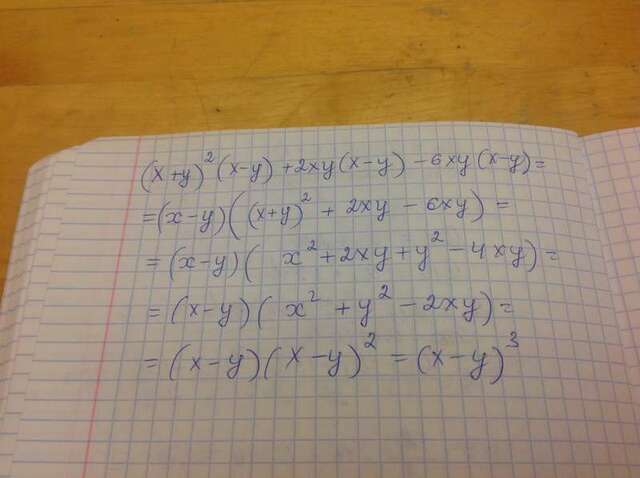 (x+y)²(x-y)+2xy(x-y)-6xy(x-y)=
=(x-y)((x+y)²+2xy-6xy)=
=(x-y)(x²+2xy+y²-4xy)=
=(x-y)(x²+y²-2xy)=
=(x-y)(x-y)²=(x-y)³